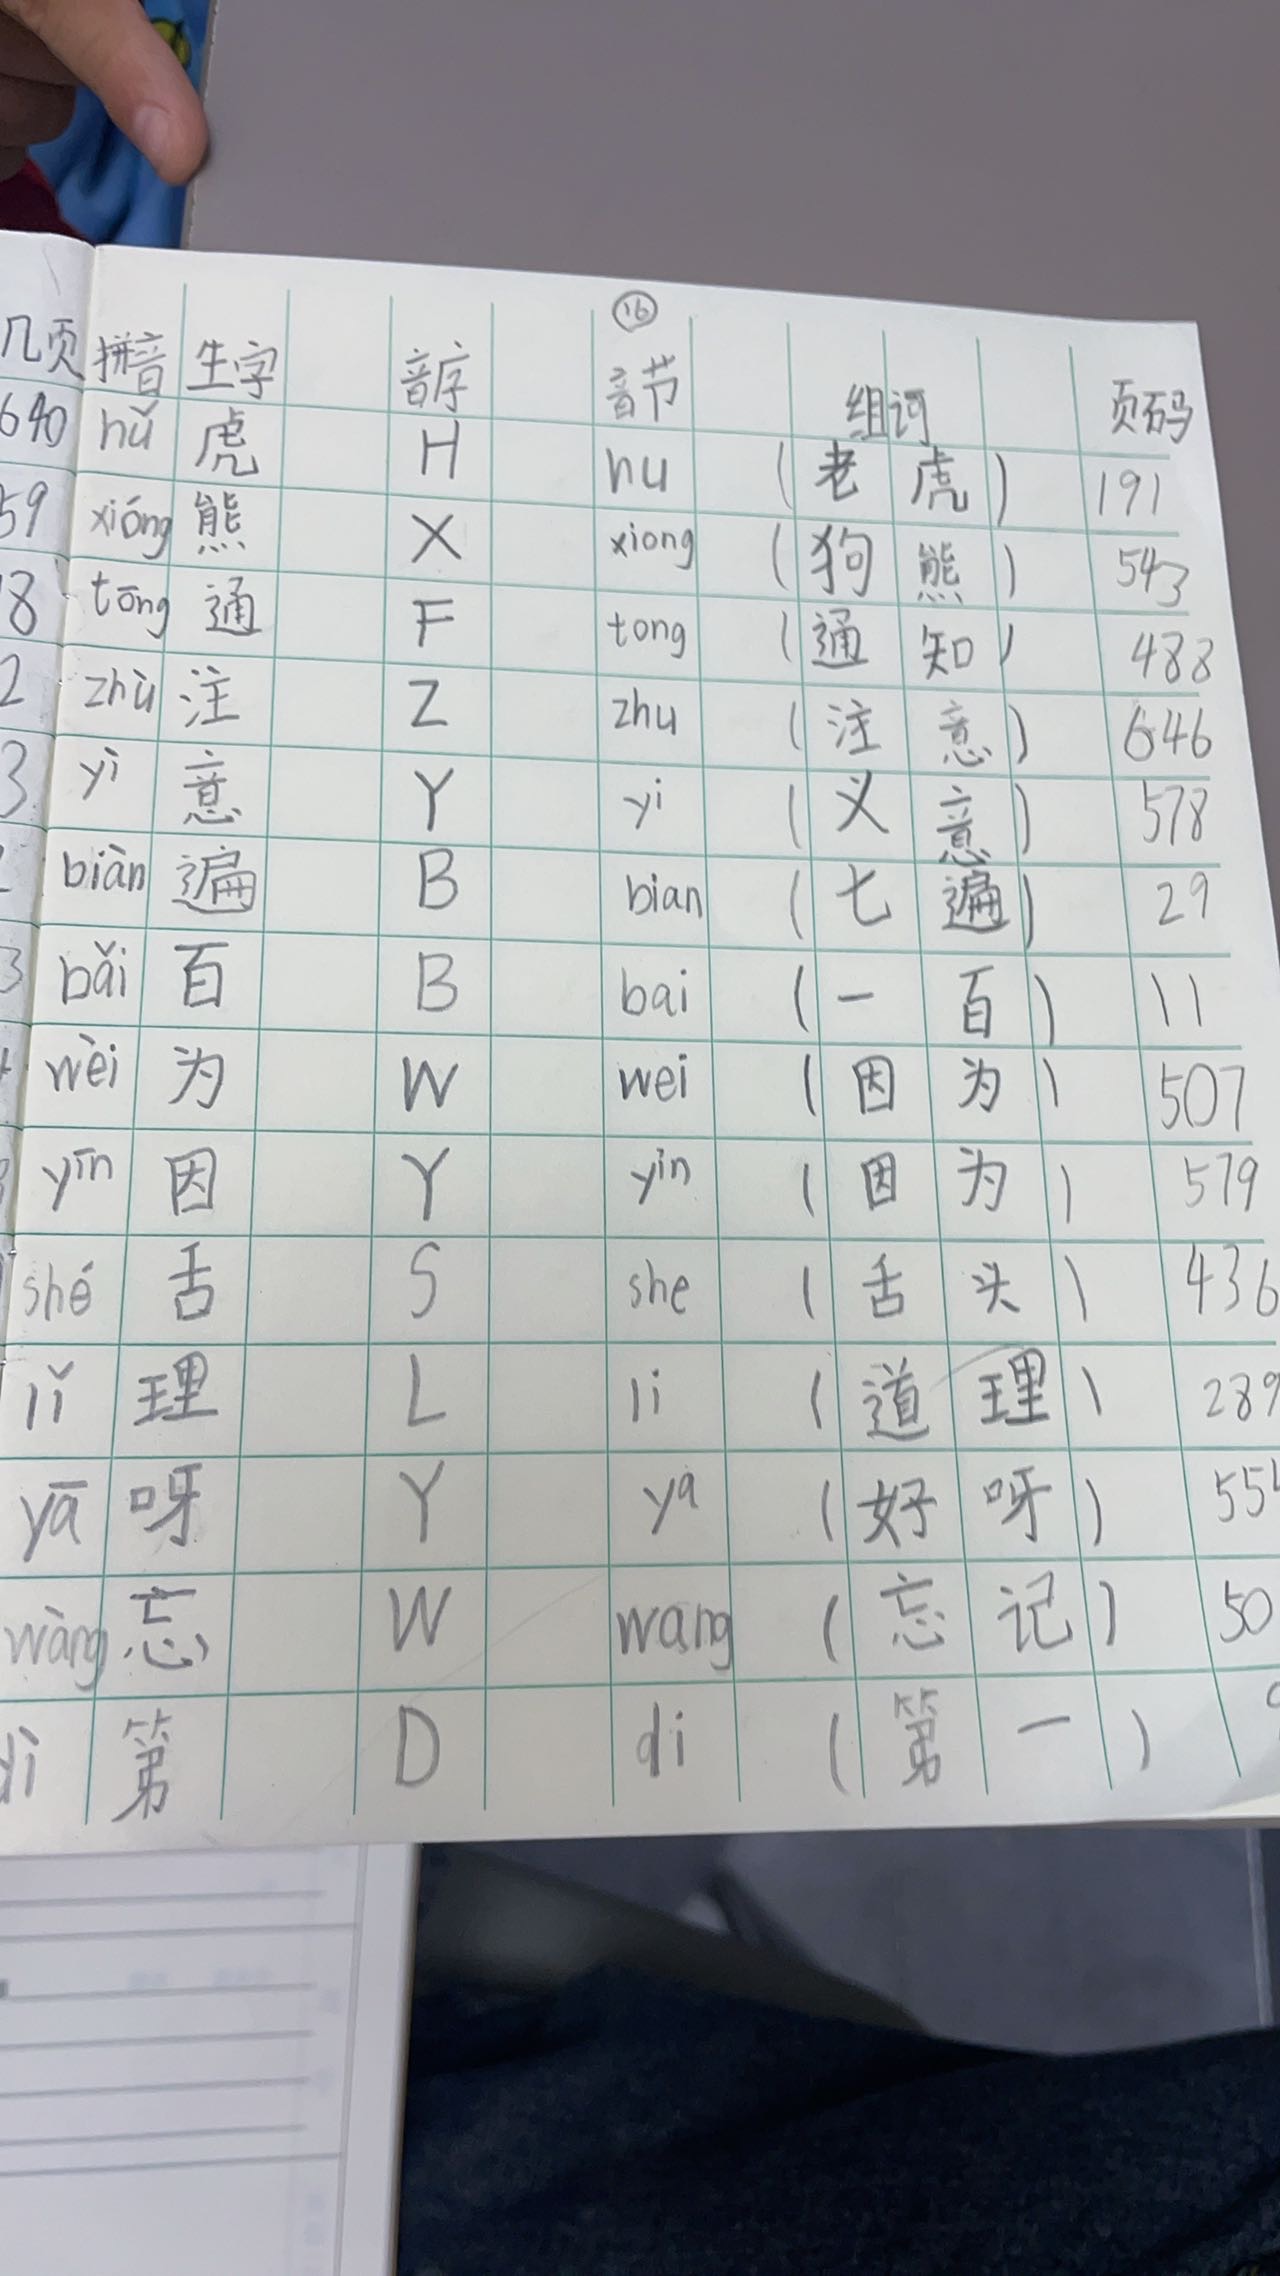 ⑯
几页 拼音 生字 音序 音节 组词 页码
640 hǔ 虎 H hu (老虎) 191
59 xióng 熊 X xiong (狗熊) 543
8 tōng 通 F tong (通知) 488
2 zhù 注 Z zhu (注意) 646
3 yì 意 Y yi (义意) 578
biàn 遍 B bian (七遍) 29
3 bǎi 百 B bai (一百) 11
wèi 为 W wei (因为) 507
yīn 因 Y yin (因为) 579
shé 舌 S she (舌头) 436
lǐ 理 L li (道理) 289
yā 呀 Y ya (好呀) 554
wàng 忘 W wang (忘记) 50
dì 第 D di (第一)